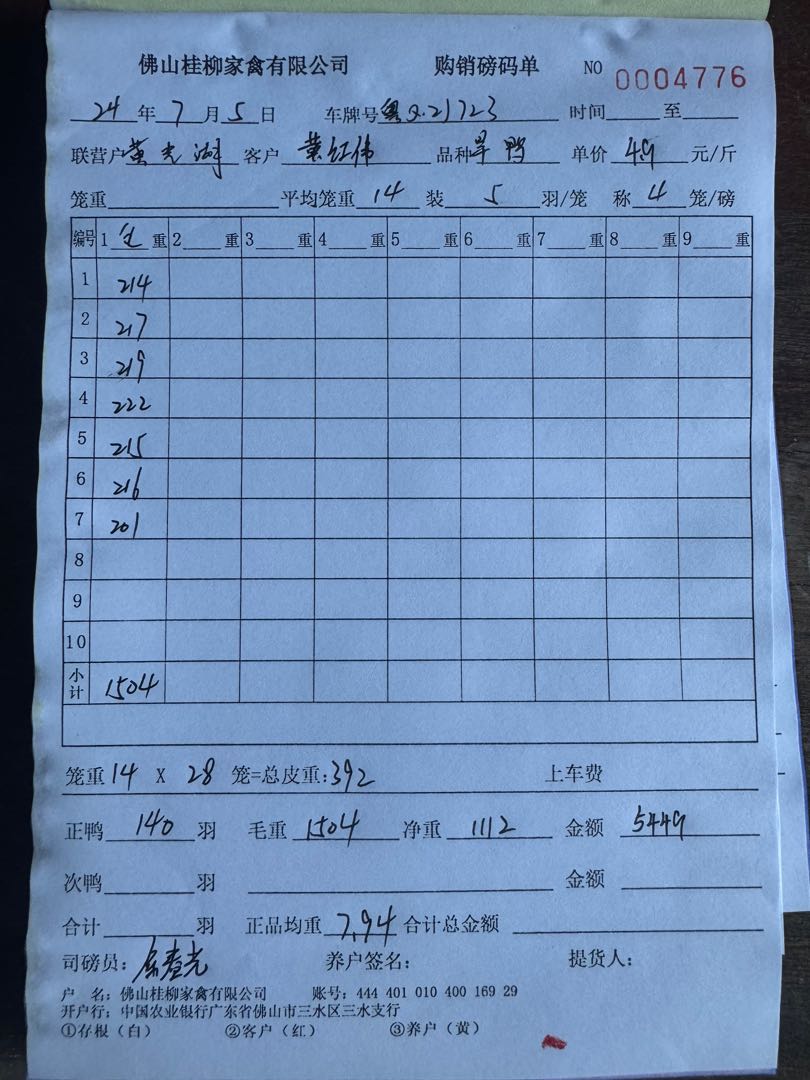 佛山桂柳家禽有限公司 购销磅码单 NO 0004776
24 年 7 月 5 日 车牌号 粤Q.21723 时间 至
联营户 黄光湖 客户 黄红伟 品种 旱鸭 单价 4.9 元/斤
笼重 平均笼重 14 装 5 羽/笼 称 4 笼/磅
编号 1 毛 重 2 重 3 重 4 重 5 重 6 重 7 重 8 重 9 重
1 214
2 217
3 219
4 222
5 215
6 216
7 201
8
9
10
小计 1504
笼重 14 X 28 笼=总皮重:392 上车费
正鸭 140 羽 毛重 1504 净重 1112 金额 5449
次鸭 羽 金额
合计 羽 正品均重 7.94 合计总金额
司磅员: 养户签名: 提货人:
户 名: 佛山桂柳家禽有限公司 账号: 444 401 010 400 169 29
开户行: 中国农业银行广东省佛山市三水区三水支行
①存根(白) ②客户(红) ③养户(黄)